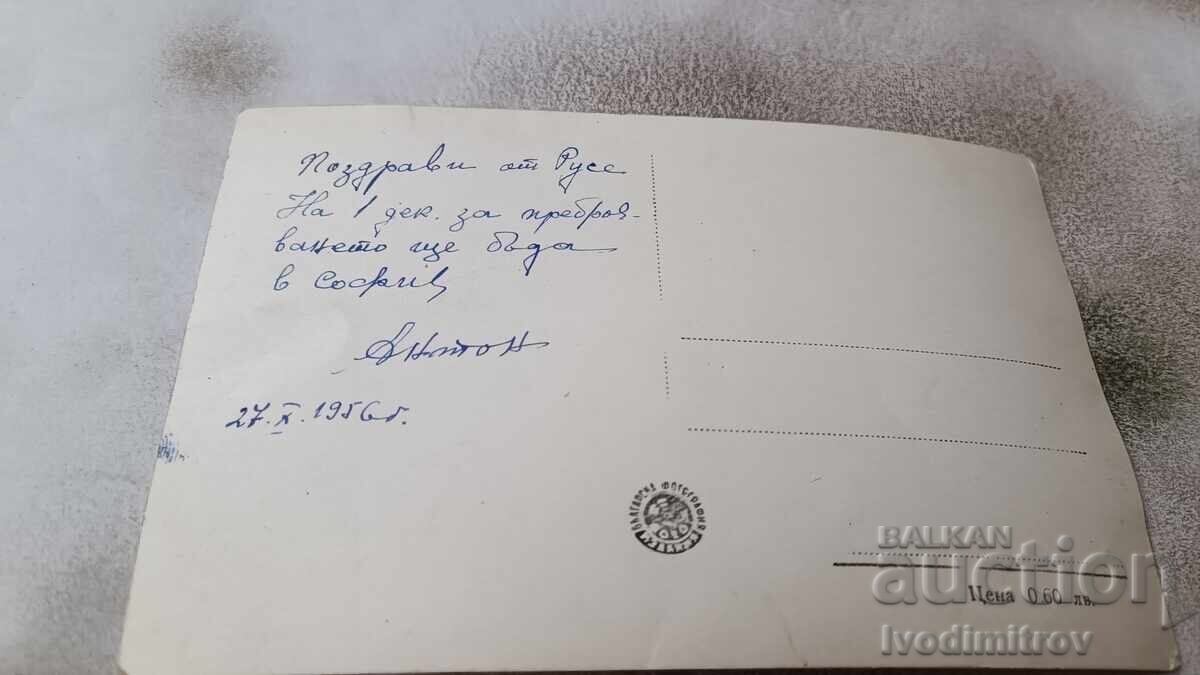 Поздрави от Русе
На 1 дек. за преброя-
ването ще бъда
в София
Антон
27. X. 1956 г.
БЪЛГАРСКА ФОТОГРАФИЯ
Цена 0.60 лв.
BALKAN
auction
Ivodimitrov